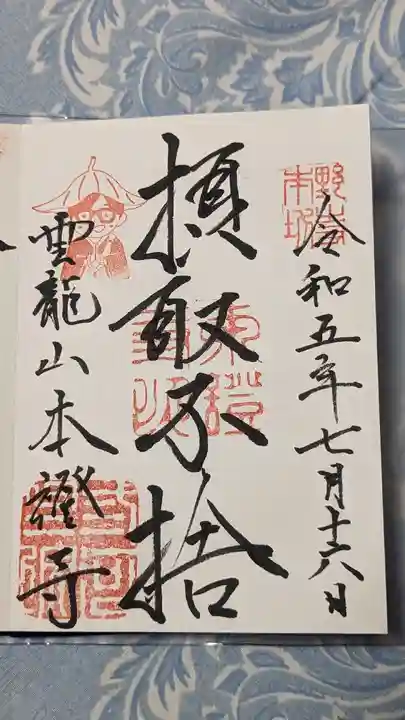 令和五年七月十六日
摂取不捨
雲龍山本證寺